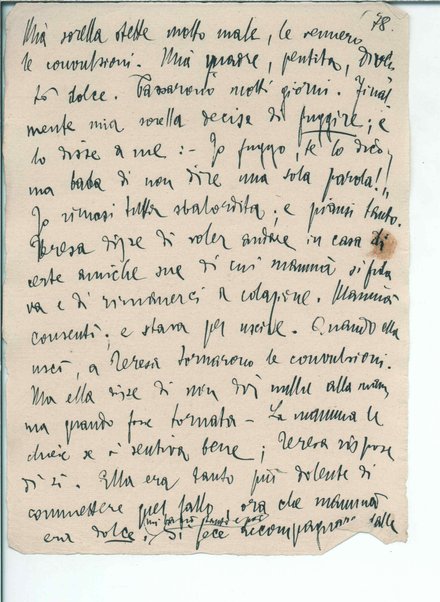 78.
Mia sorella stette molto male, le vennero
le convulsioni. Mia madre, pentita, diven-
tò dolce. Passarono molti giorni. Final-
mente mia sorella decise di fuggire; e
lo disse a me: - Io fuggo, te lo dico,
ma bada di non dire una sola parola!,,
Io rimasi tutta sbalordita; e piansi tanto.
Teresa disse di voler andare in casa di
certe amiche sue di cui mammà si fida-
va e di rimanerci a colazione. Mammà
consentì; e stava per uscire. Quando ella
uscì, a Teresa tornarono le convulsioni.
Ma ella disse di non dir nulla alla mam-
ma quando fosse tornata - La mamma le
chiese se si sentiva bene; Teresa rispose
di sì. Ella era tanto più dolente di
commettere quel fallo, ora che mammà
era dolce. Si fece accompagnare dalle